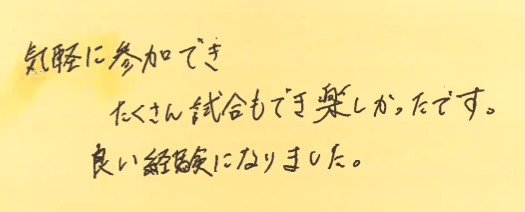 気軽に参加でき
たくさん試合もでき楽しかったです。
良い経験になりました。